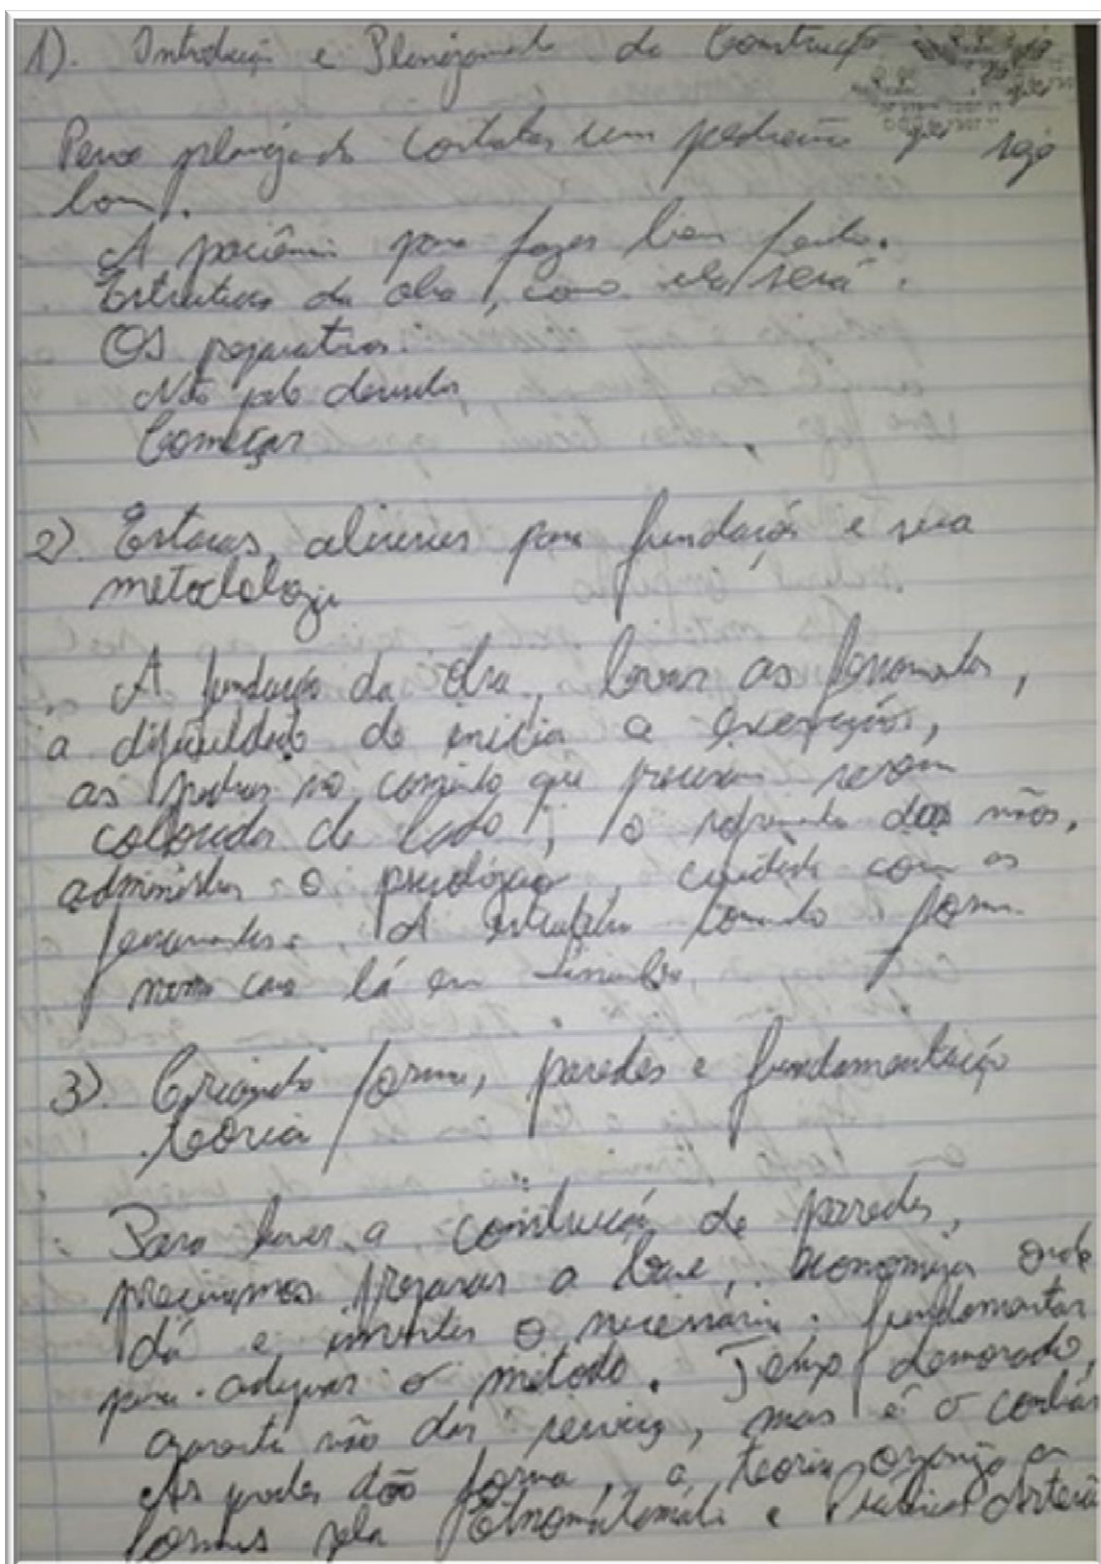 1). Introdução e Planejamento da Construção
Penso planejando contratar um pedreiro que seja
bom.
A paciência para fazer bem feito.
Estrutura da obra, como ela será.
Os preparativos.
Não pode demorar
Começar
2) Estacas, alicerces para fundação e sua
metodologia
A fundação da obra, levar as ferramentas,
a dificuldade de iniciar a execução,
as pedras no caminho que precisam serem
colocadas de lado, o das mãos,
administrar o psicológico, cuidado com as
ferramentas. A estrutura tomando forma
nossa casa lá em
3) Criando forma, paredes e fundamentação
teórica
Para haver a construção de paredes,
precisamos preparar a base, economizar onde
dá e investir o necessário, fundamentar
para adequar o método. Tempo demorado,
garante não dar serviço, mas é o contrário
As paredes dão forma, a teoria organiza as
formas pela Etnomatemática e Práticas